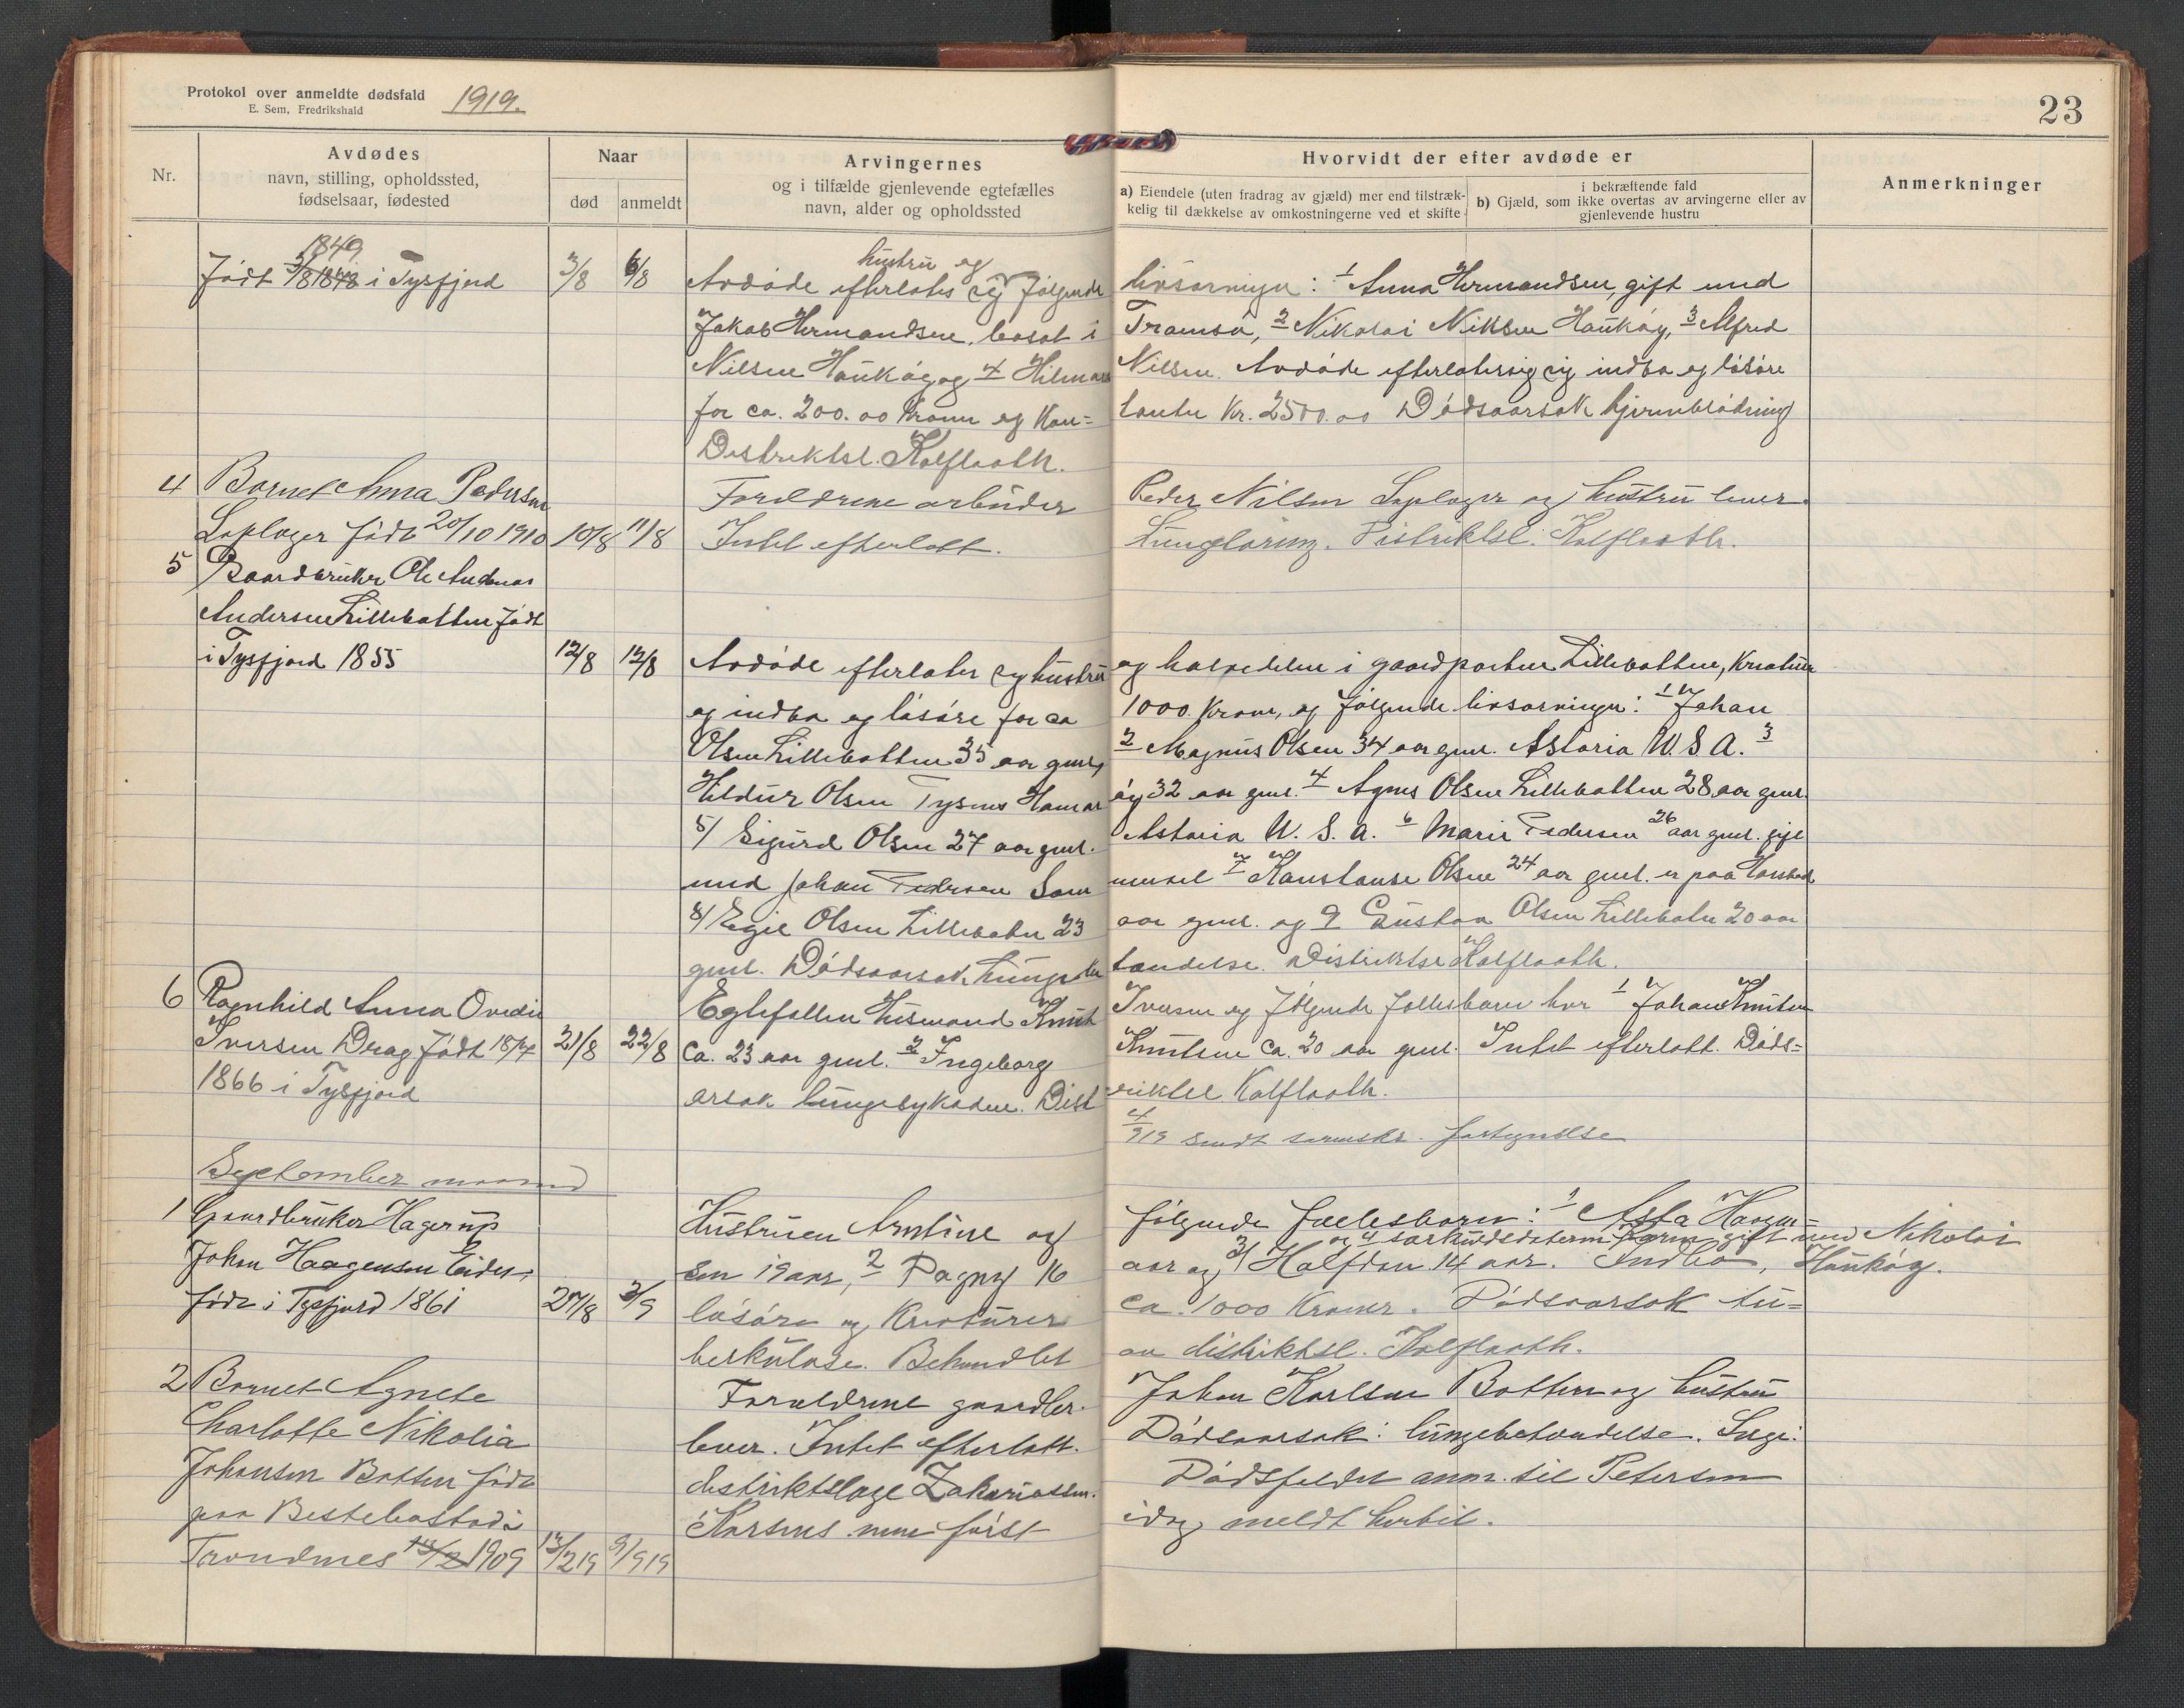 Protokol over anmeldte dødsfald 1919.
E. Sem, Fredrikshald
23
Nr.
Avdødes
navn, stilling, opholdssted,
fødselsaar, fødested
Naar
død
anmeldt
Arvingernes
og i tilfælde gjenlevende egtefælles
navn, alder og opholdssted
Hvorvidt der efter avdøde er
a) Eiendele (uten fradrag av gjæld) mer end tilstræk-
kelig til dækkelse av omkostningerne ved et skifte
i bekræftende fald
b) Gjæld, som ikke overtas av arvingerne eller av
gjenlevende hustru
Anmerkninger
1849
født 3/8 1848 i Tysfjord 3/8 6/8
hustru og
Avdøde efterlates sig følgende livsarvinger: 1 Anna Hermandsen, gift med
Jakob Hermandsen, bosat i Tromsø, 2 Nikolai Nilsen Haukøy, 3 Alfred
Nilsen Haukøy og 4 Hilmar Nilsen. Avdøde efterlater sig indbo og løsøre
for ca. 200.00 kroner og kon- tanter Kr. 2500.00 Dødsaarsak hjerneblødning
Distriktsl. Kolflaath.
4 Barnet Anna Pedersen
Loplager født 20/10 1910 10/8 11/8
Forældrene arbeider Peder Nilsen Loplager og hustru lever.
Intet efterlatt. Distriktsl. Kolflaath.
5 Gaardbruker Ole Andreas
Andersen Lillebotten født
i Tysfjord 1855 12/8 12/8
Avdøde efterlater sig hustru og halvedelen i gaardparten Lillebotten, Kreatur
og indbo og løsøre for ca 1000 kroner, og følgende livsarvinger: 1 Johan
Olsen Lillebotten 35 aar gml, 2 Magnus Olsen 34 aar gml. Astoria U.S.A. 3
Hildur Olsen Tysnes Hamar øy 32 aar gml. 4 Agnes Olsen Lillebotten 28 aar gml.
5/ Sigurd Olsen 27 aar gml. Astoria U.S.A. 6 Marie Pedersen 26 aar gml. gift
med Johan Pedersen 7 Konstanse Olsen 24 aar gml. er paa Harstad
8/ Egil Olsen Lillebotn 23 aar gml. og 9 Gustav Olsen Lillebotn 20 aar
gml. Dødsaarsak Lungebe tændelse. Distriktsl Kolflaath.
6 Ragnhild Anna Ovedie
Iversen Drag født 18/4
1866 i Tysfjord 21/8 22/8
Egtefællen Husmand Knut Iversen og følgende fællesbarn har 1 Johan Knutsen
Ca. 23 aar gml. 2 Ingeborg Knutsen ca. 20 aar gml. Intet efterlatt. Døds-
arsak lungesykdom. Dist riktsl Kolflaath.
4/9 19 sendt sorenskr. fortegnelse
September maaned
1 Gaardbruker Hagerup
Johan Haagensen Eide,
født i Tysfjord 1861 27/8 3/9
Hustruen Arntine og følgende fællesbarn: 1 Asta Haagen-
og 4 særkulds datteren gift med Nikolai
sen 19 aar, 2 Dagny 16 aar og 3/ Halfdan 14 aar. Indbo, Haukøy.
løsøre og Kreaturer ca. 1000 Kroner. Dødsaarsak tu-
berkulose. Behandlet av distriktsl. Kolflaath.
2 Barnet Agnete
Charlotte Nikolia
Johansen Botten født
paa Bestebostad i
Trondenes 13/2 1909 13/2 19 9/9 19
Forældrene gaardbr. Johan Karlsen Botten og hustru
lever. Intet efterlatt. Dødsaarsak: lungebetændelse. Lege:
distriktslæge Zakariassen. Dødsfaldet anm. til Petersen
Korsnes men først idag meldt hertil.